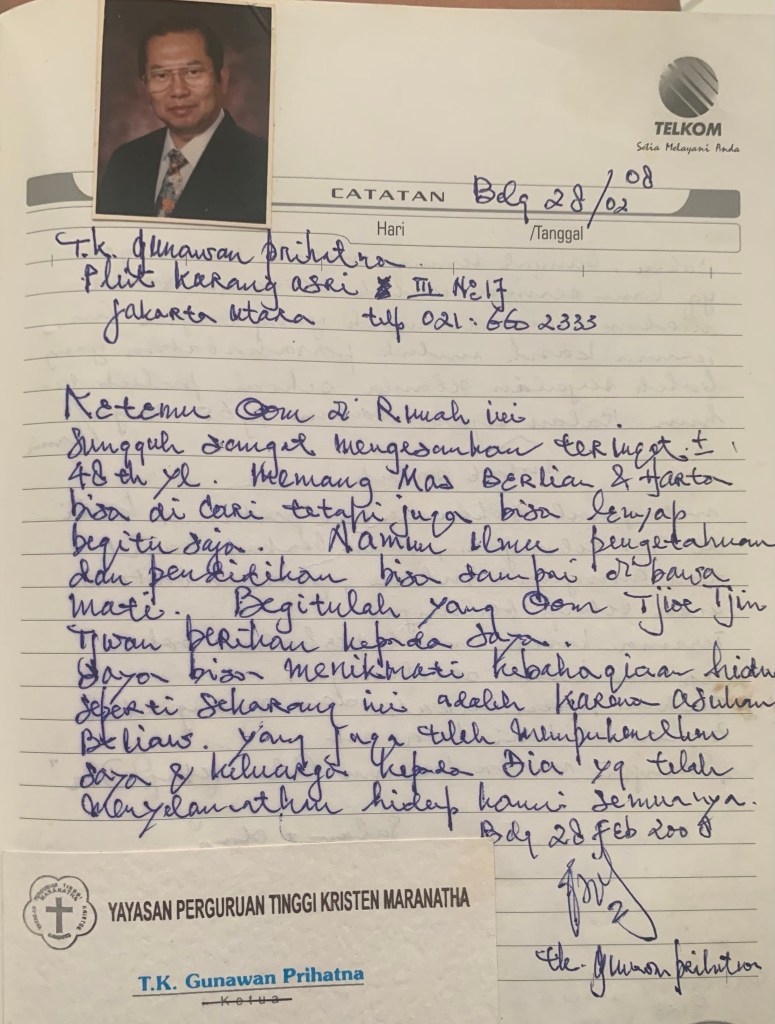 TELKOM
Setia Melayani Anda
CATATAN
Bdg 28/02 08
Hari /Tanggal
T.K. Gunawan prihatna
Pluit Karang asri III No 17
Jakarta Utara telp 021. 660 2333
Ketemu Oom di Rumah ini
Sungguh sangat mengesankan teringat ±
48 th yl. Memang Mas Berlian & Harta
bisa di cari tetapi juga bisa lenyap
begitu saja. Namun Ilmu pengetahuan
dan pendidikan bisa sampai di bawa
mati. Begitulah yang Oom Tjioe Tjin
Tjwan berikan kepada saya.
Saya bisa menikmati kebahagiaan hidup
seperti sekarang ini adalah karena asuhan
Beliau. yang juga telah memperkenalkan
saya & keluarga kepada Dia yg telah
menyelamatkan hidup kami semuanya.
Bdg 28 Feb 2008
T.K. Gunawan prihatna
YAYASAN PERGURUAN TINGGI KRISTEN MARANATHA
T.K. Gunawan Prihatna
Ketua